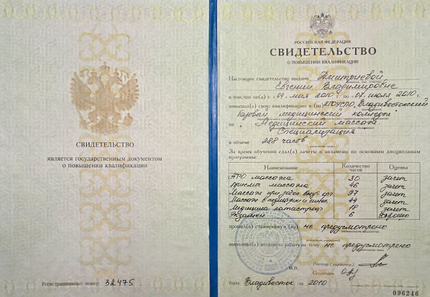 СВИДЕТЕЛЬСТВО
является государственным документом
о повышении квалификации
Регистрационный номер 32475
РОССИЙСКАЯ ФЕДЕРАЦИЯ
СВИДЕТЕЛЬСТВО
О ПОВЫШЕНИИ КВАЛИФИКАЦИИ
Настоящее свидетельство выдано Дмитриевой
Евгении Владимировне
в том, что он(а) с 04 мая 2010 г. по 08 июля 2010 г.
повысил(а) свою квалификацию в (на) Владивостокский
медицинском колледже
по Медицинский массаж
Специализация
в объеме 288 часов
За время обучения сдал(а) зачеты и экзамены по основным дисциплинам
программы:
Наименование
Количество
часов
Оценка
массажа 30 зачет
массажа 46 зачет
Массаж при 97 зачет
Массаж в 44 зачет
Медицина катастроф зачет
6 хорошо
прошел(а) стажировку в (на) не предусмотрено
выполнил(а) итоговую работу на тему не предусмотрено
М.П.
Город Владивосток год 2010
096246